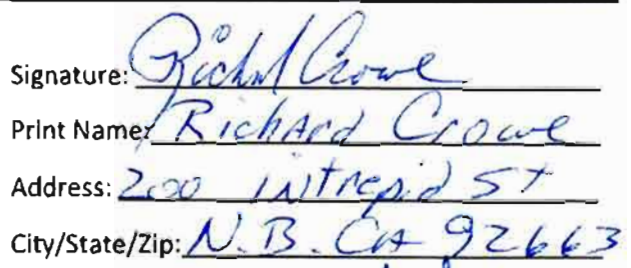 Signature: Richard Crowe
Print Name: Richard Crowe
Address: 200 intrepid St
City/State/Zip: N.B. CA 92663